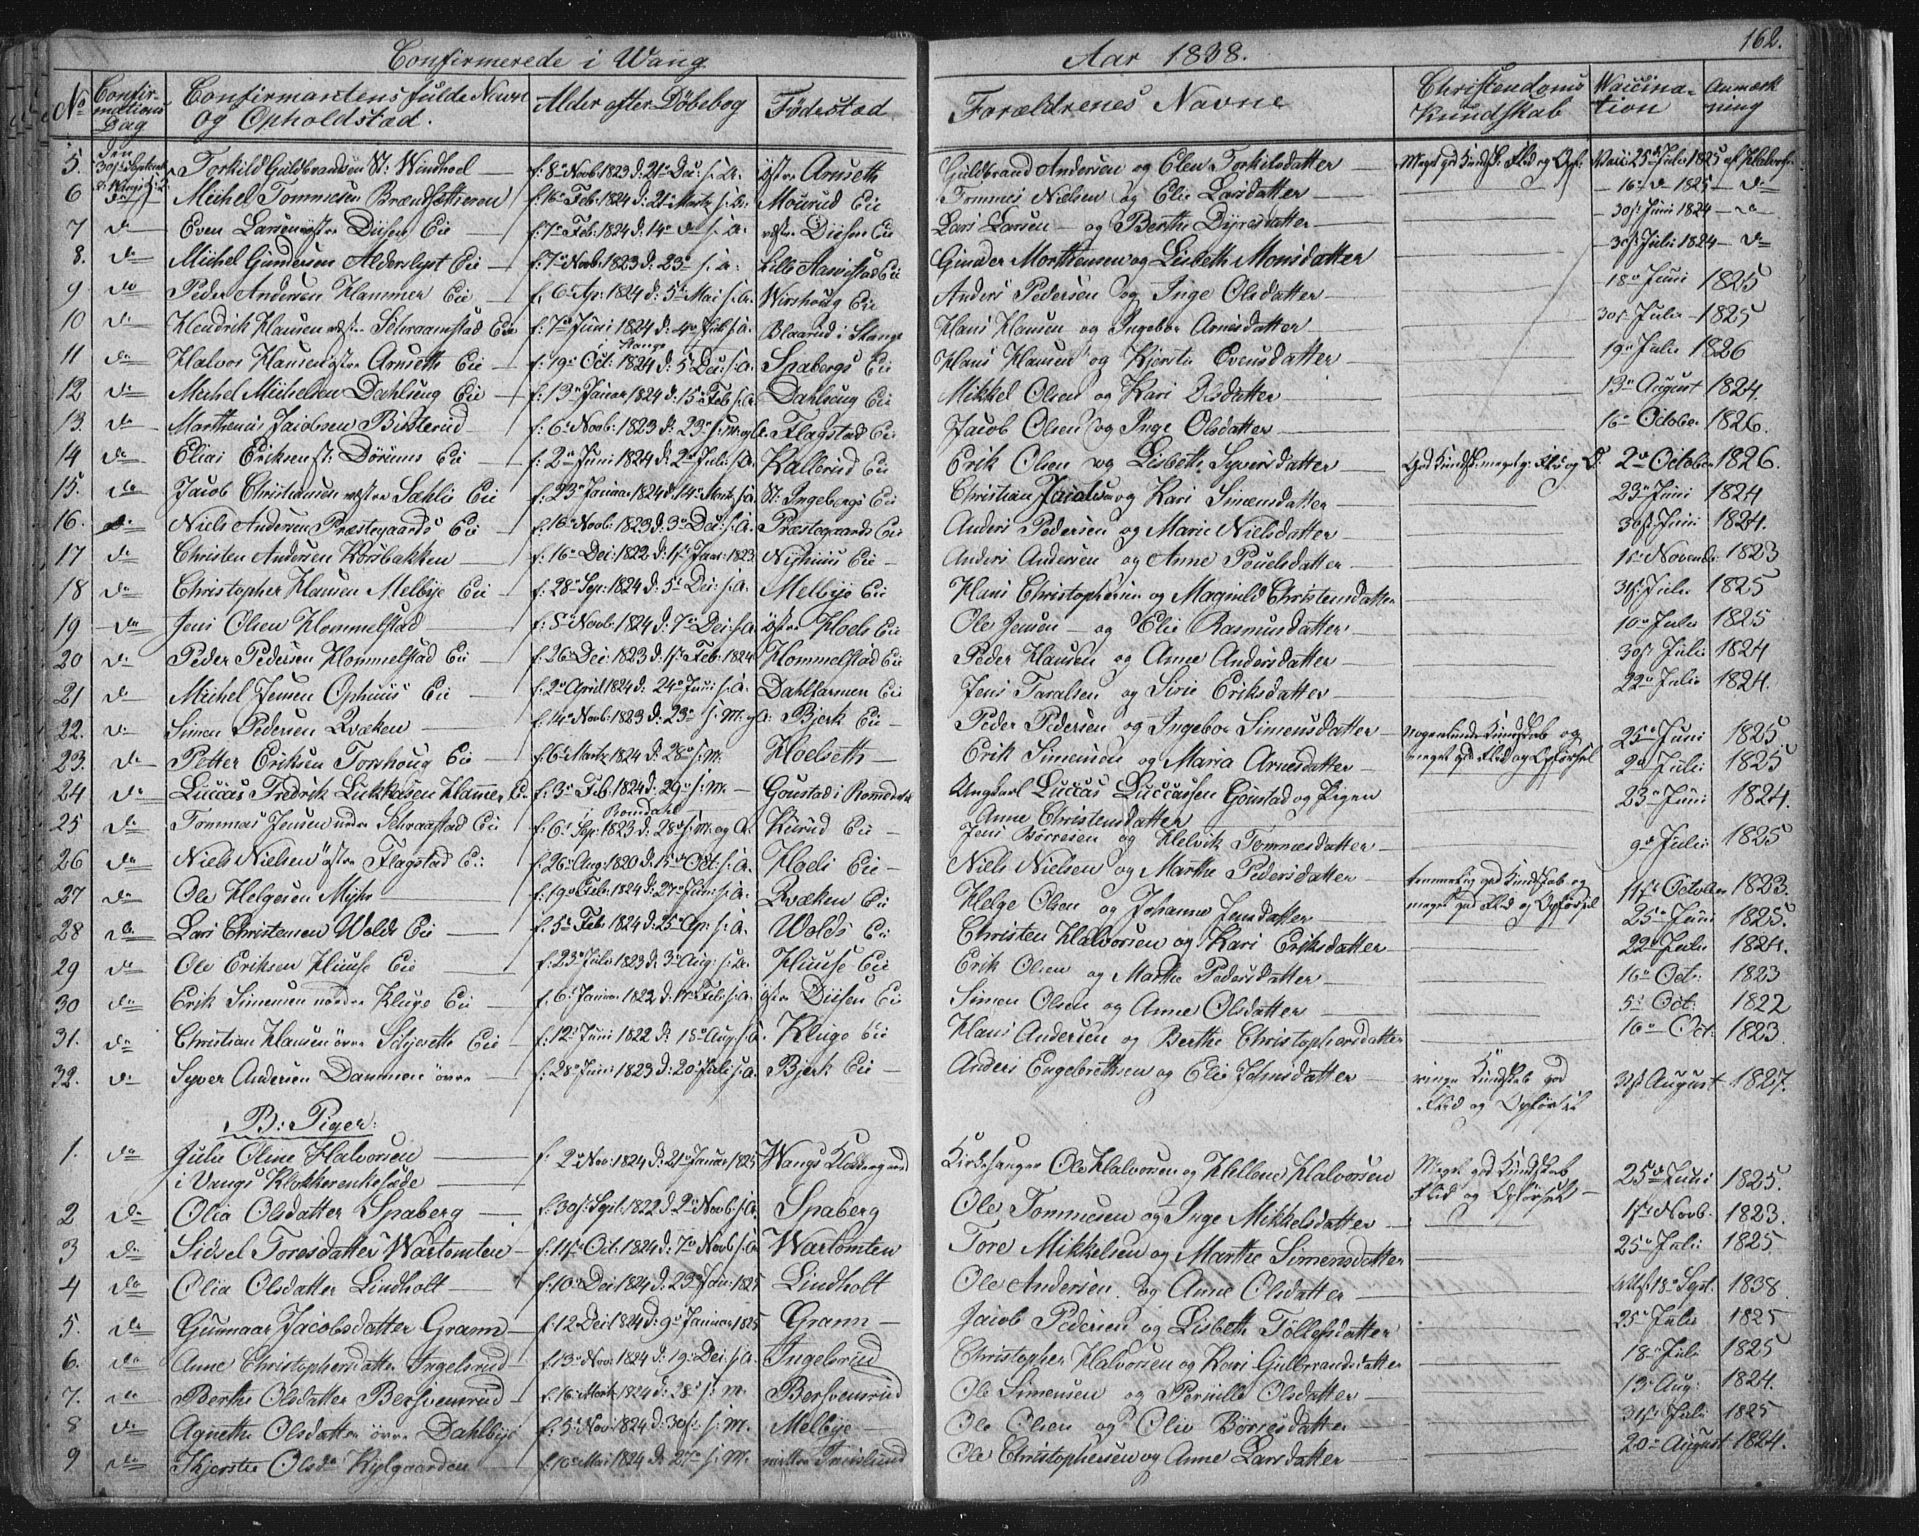 162.
Confirmerede i Wang Aar 1838.
No Confirmations Dag Confirmantens fulde Navn og Opholdstad. Alder efter Døbebog Fødestad Forældrenes Navne Christendoms Kundskab Vaccination Anmerkning
5. den 30te Septemb. Torkild Guldbrandsen St: Windhoel f: 8de Novb: 1823 d: 21de Dec: s: A: østre Arnseth Guldbrand Andersen og Elen Torkilsdatter Meget god Kundsk: Flid og Opf: Vacc: 25de Julii 1825 af Halvorsen
6 do Michel Tommesen Brændsætteren f: 16de Feb: 1824 d: 21de Martz s: A: Mourud Eie Tommes Nielsen og Elie Larsdatter 16de do 1825 do
7 do Even Larsen østre Diisen Eie f: 7de Feb: 1824 d: 14de do s: A: vestre Diisen Eie Lars Larsen og Berthe Dyresdatter 30te Juni 1824 do
8. do Michel Gundersen Alderslyst Eie f: 7de Novb: 1823 d: 23de s: A: Lille Aarvistad Eie Gunder Morthensen og Lisbeth Monsdatter 30te Julii 1824 do
9 do Peder Andersen Hammer Eie f: 6te Ap: 1824 d: 5te Mai s: A: Wirshoug Eie Anders Pedersen og Inge Olsdatter 18de Juni 1825
10 do Hendrik Hansen vestre Schraamstad Eie f: 7de Juni 1824 d: 4de Juli s: A: i Stange Blaarud i Stange Hans Hansen og Ingebor Arnesdatter 30te Julii 1825
11 do Halvor Hansen østre Arnseth Eie f: 19de Oct: 1824 d: 5 Dec: s: A: Spabergs Eie Hans Hansen og Kjerstie Evensdatter 19de Julii 1826
12 do Michel Michelsen Dahlseng Eie f: 13de Januar 1824 d: 15de Feb s: A: Dahlseng Eie Mikkel Olsen og Kari Olsdatter 13de August 1824.
13. do Marthenus Jacobsen Bisterud f: 6te Novb: 1823 d: 23de s: M: og A: Flagstad Eie Jacob Olsen og Inge Olsdatter 16de October 1826.
14 do Elias Eriksen st: Dørums Eie f: 2den Juni 1824 d: 2den Juli s: A: Kallerud Eie Erik Olsen og Lisbeth Syversdatter God Kundsk: meget g: Flid og O. 2den October 1826.
15. do Jacob Christiansen vestre Sæhlie Eie f: 23de Januar 1824 d: 14de Martz s: A: St: Ingebergs Eie Christian Jacobsen og Kari Simensdatter 23de Juni 1824
16. do Niels Andersen Præstegaards Eie f: 16de Novb: 1823 d: 3de Dec: s: A: Præstegaards Eie Anders Pedersen og Marie Nielsdatter 30te Juni 1824.
17 do Christen Andersen Korsbakken f: 16de Dec: 1822 d: 1ste Janr: 1823 Nyhuus Eie Anders Andersen og Anne Pouelsdatter 16 Novemb: 1823
18 do Christopher Hansen Melbye Eie f: 28de Sep: 1824 d: 5te Dec: s: A: Melbye Eie Hans Christophersen og Magnild Christensdatter 31te Julii 1825
19 do Jens Olsen Hommelstad f: 8de Novb: 1824 d: 7de Dec: s: A: østre Hoels Eie Ole Jensen og Elie Rasmusdatter 10de Julii 1825
20 do Peder Pedersen Hommelstad Eie f: 26de Dec: 1823 d: 1ste Feb: 1824 Hommelstad Eie Peder Hansen og Anne Andersdatter 30te Julii 1824
21 do Michel Jensen Ophuus Eie f: 2de April 1824 d: 24de Juni s: A: Dahlfarmen Eie Jens Taralsen og Sirie Eriksdatter 22de Julii 1824.
22. do Simen Pedersen Qvæken f: 14de Novb: 1823 d: 23de s: M: og A: Bjerk Eie Peder Pedersen og Ingebor Simensdatter nogenlunde Kundskab og 25de Juni 1825
23. do Petter Eriksen Torshoug Eie f: 6te Martz 1824 d: 28de s: M. Hoelseth Erik Simensen og Maria Arnesdatter meget god Flid og Opførsel 2de Julii 1825
24 do Luccas Fredrik Lukkasen Hammer E. f: 3de Feb: 1824 d: 29de s: M. i Romedahl Goustad i Romedahl Ungkarl Luccas Luccassen Goustad og Pigen Anne Christensdatter 23de Juni 1824.
25 do Tommas Jensen nedre Schraastad Eie f: 6te Sep: 1823 d: 28de s: M: og A: Kurud Eie Jens Børresen og Helvik Tommesdatter 9de Julii 1825
26 do Niels Nielsen østre Flagstad Eie f: 26de Aug: 1820 d: 15de Oct: s: A: Hoels Eie Niels Nielsen og Marthe Pedersdatter temmelig god Kundskab og
27 do Ole Helgesen Myhr f: 19de Feb: 1824 d: 27de Juni s: A: Qvæken Eie Helge Olsen og Johanne Jensdatter meget god Flid og Opførsel 11te October 1823.
28 do Lars Christensen Wolds Eie f: 5te Feb: 1824 d: 25de Ap: s: A: Wolds Eie Christen Halvorsen og Kari Eriksdatter 25de Juni 1825.
29 do Ole Eriksen Huuse Eie f: 23de Julii 1823 d: 3de Aug: s: A: Huuse Eie Erik Olsen og Marthe Pedersdatter 22de Julii 1824.
30 do Erik Simensen nordre Kluge Eie f: 6te Januar 1822 d: 17de Feb: s: A: østre Diisen Eie Simen Olsen og Anne Olsdatter 16de Oct: 1823 5te Oct: 1822
31. do Christian Hansen øvre Schjesette Eie f: 12te Juni 1822 d: 18de Aug: s: A. Kluge Eie Hans Andersen og Berthe Christophersdatter 16de Oct: 1823
32. do Syver Andersen Dammen øvre f: 28de Juni 1823 d: 20de Juli s: A. Bjerk Eie Anders Engebrethsen og Elie Johnsdatter ringe Kundskab god Flid og Opførsel 31te August 1827.
B: Piger:
1. do Julie Oline Halvorsen i Vangs Klokkerenkesæde f: 2de Nov: 1824 d: 21de Januar 1825 Wangs Klokkergaard Kirkesanger Ole Halvorsen og Hellene Halvorsen Meget god Kundskab Flid og Opførsel 25de Juni 1825.
2 do Olia Olsdatter Spaberg f: 30te Sept: 1822 d: 2de Novb: s: A: Spaberg Ole Tommesen og Inge Mikkelsdatter 17de Novb. 1823.
3 do Sidsel Toresdatter Wartomten f: 14de Oct: 1824 d: 7de Novb: s: A Wartomten Tore Mikkelsen og Marthe Simensdatter 25de Julii 1825
4 do Olia Olsdatter Lindholt f: 10de Dec: 1824 d: 23de Jan: 1825 Lindholt Ole Andersen og Anne Olsdatter Attest 18de Sept. 1838.
5. do Gunnaar Jacobsdatter Grann f: 12 Dec: 1824 d: 9de Januar 1825 Grann Jacob Pedersen og Lisbeth Tøllefsdatter 25de Julii 1825
6. do Anne Christophersdatter Ingelsrud f: 13de Nov: 1824 d: 19de Dec: s: A: Ingelsrud Christopher Halvorsen og Kari Gulbrandsdatter 18de Juli 1825
7. do Berthe Olsdatter Bersvensrud f: 16de Martz 1824 d: 28de s: M. Bersvensrud Ole Simensen og Pernille Olsdatter 13de Aug: 1824.
8 do Agnethe Olsdatter øvre Dahlbye f: 5te Nov: 1824 d: 30te s: M. Melbye Ole Olsen og Olie Børresdatter 31te Juli 1825
9 do Kjerstie Olsda Kylgaarden f: 10de Mai 1824 d: 27de s: M. Ole Christophersen og Anne Larsdatter 20de August 1824.